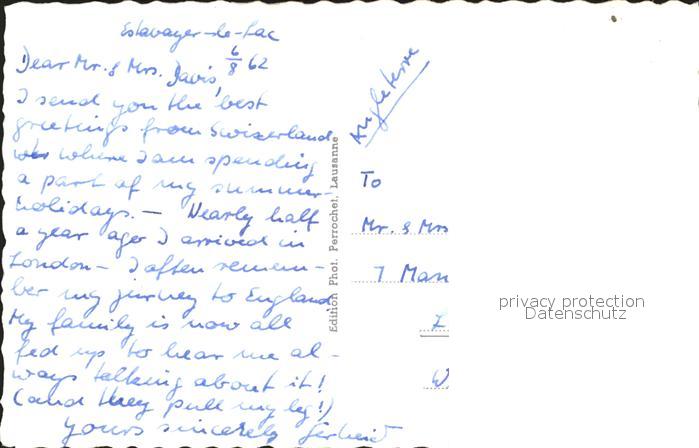 Estavayer-le-Lac
6/8 62
Dear Mr. & Mrs. Davis,
I send you the best
greetings from Swizerland
where I am spending
a part of my summer-
holidays. — Nearly half
a year ago I arrived in
London - I often remem-
ber my jurney to England
My family is now all
fed up to hear me al-
ways talking about it!
(and they pull my leg!)
Yours sincerely
Edition Phot. Perrochet, Lausanne
Angleterre
To
Mr. & Mrs
7
privacy protection
Datenschutz